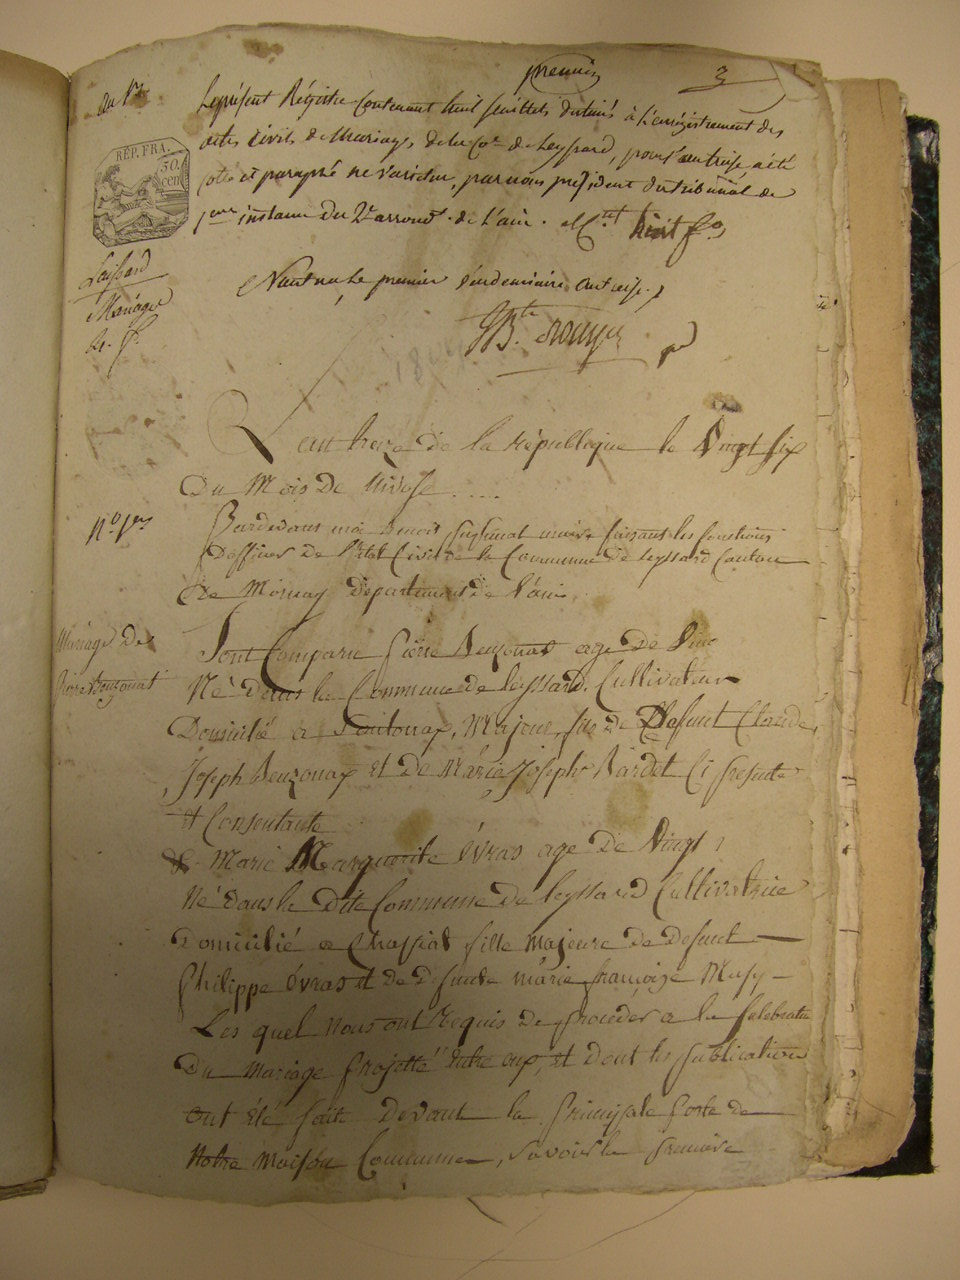 premier
3
an 13
Le présent Régistre Contenant huit feuillets destinés à L'enrégistrement des
actes Civils de Mariage de la Cne de Leyssard, pour l'an treize a été
cotté et paraphé ne varietur, par nous président du tribunal de
1ere instance du 2e arrondt. de L'ain.
Nantua le premier Vendemiaire an treize.
RÉP. FRA.
50.
cen
Leissard
Mariage
L'an treze de la république le Vingt six
Du Mois de Nivose ....
N.o 1er
Pardevant moi Benoit maire faisant les fonctions
Dofficier de l'état Civil de la Commune de leyssard Canton
De Mornay département de l'ain
Mariage de
Pierre Beuzonat
Sont Comparu Pierre Beuzonat age de
Né dans la Commune de leyssard. Cultivateur
Domicilié a Majeur, fils de Defunt Claude
Joseph Beuzonat et de Marie Joseph Bardet Ci presente
et Consentante
& Marie Marguerite Évras age de Vingt
Né dans la Dite Commune de leyssard Cultivatrice
Domicilié a Chassiat fille majeure de defunt
Philippe évras et de Defunte marie françoise Musy
Les quel nous ont Requis de proceder a la selebration
Du mariage projetté entre eux, et dont les publication
ont été faite devant la principale porte de
Notre maison Commune, savoir la premiere